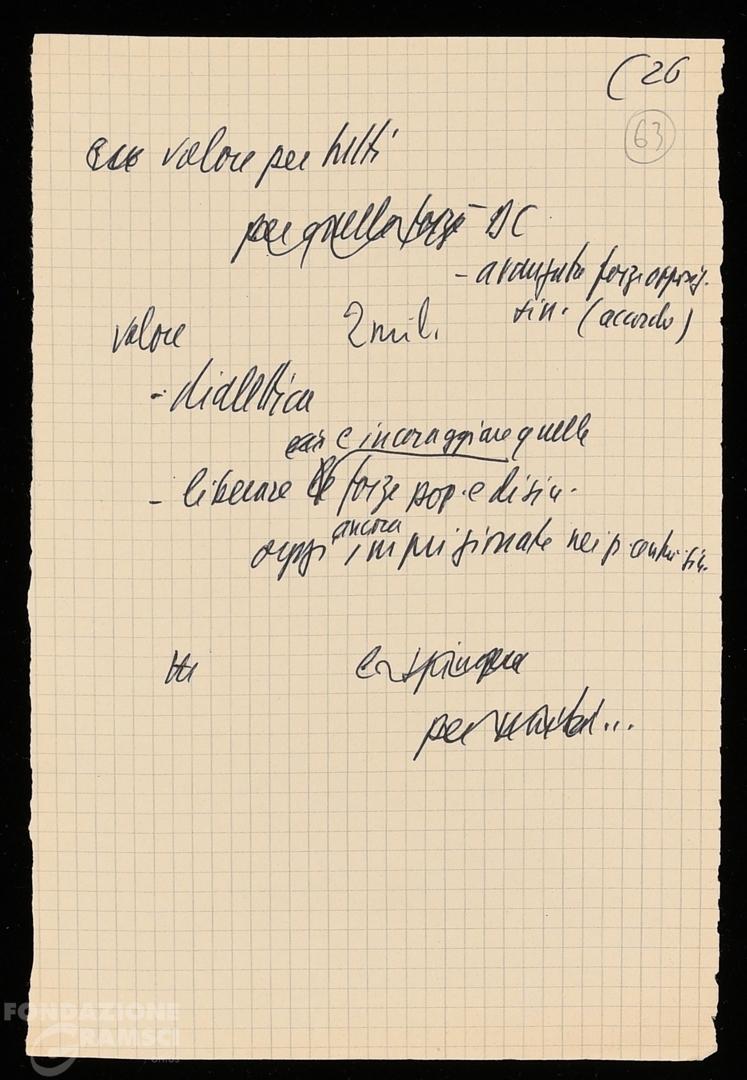 (26
63
valore per tutti
per quelle forze DC
- avanzata forze opposiz.
sin. (accordo)
valore 2 mil.
- dialettica
e incoraggiare quelle
- liberare forze pop. e di sin.
oggi ancora imprigionate nei p. centro sin.
e
per
FONDAZIONE
GRAMSCI
ONLUS